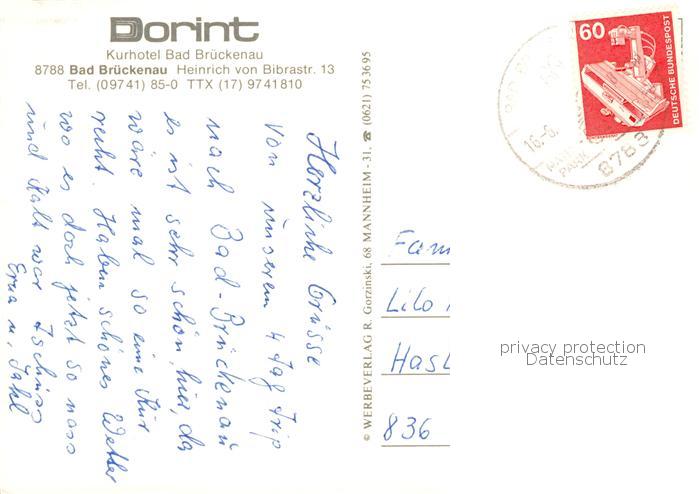 Dorint
Kurhotel Bad Brückenau
8788 Bad Brückenau Heinrich von Bibrastr. 13
Tel. (09741) 85-0 TTX (17) 9741810
Herzliche Grüsse
von unserem 4 Tag Trip
nach Bad-Brückenau
es ist sehr schön hier, da
wäre mal so eine Kur
recht. Haben schönes Wetter
wo es doch jetzt so nass
und kalt war tschüss
Erna u.
© WERBEVERLAG R. Gorzinski, 68 MANNHEIM-31, ☎ (0621) 753695
60
DEUTSCHE BUNDESPOST
16.-6.
8788
Fam
Lilo
Hasl
836
privacy protection
Datenschutz